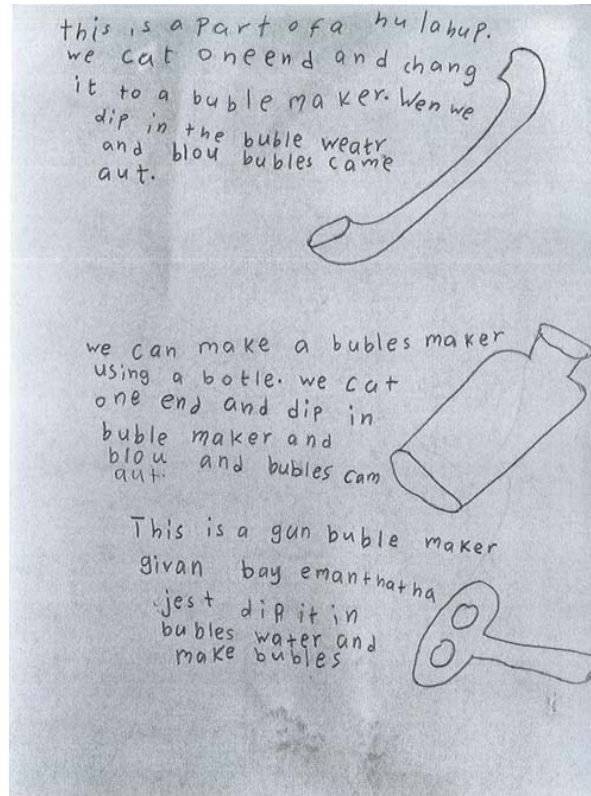 this is a part of a hulahup.
we cat one end and chang
it to a buble maker. Wen we
dip in the buble weatr
and blou bubles came
aut.
we can make a bubles maker
using a botle. we cat
one end and dip in
buble maker and
blou and bubles cam
aut.
This is a gun buble maker
givan bay emanthatha
jest dip it in
bubles water and
make bubles